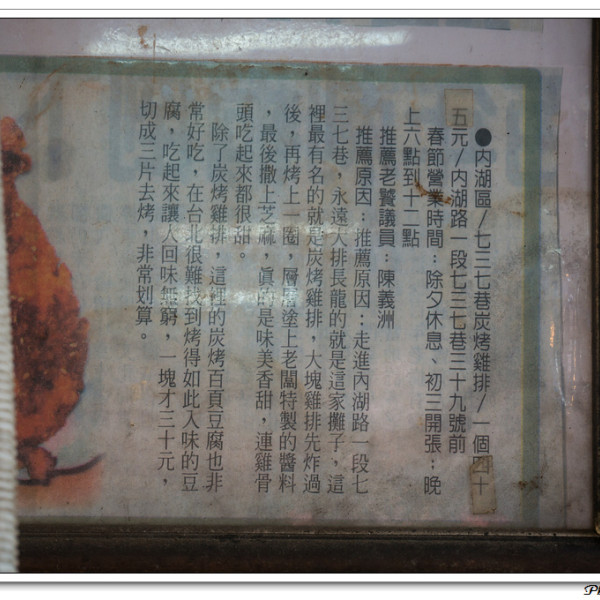 ●內湖區/七三七巷炭烤雞排/一個四十
五元/內湖路一段七三七巷三十九號前
春節營業時間：除夕休息、初三開張：晚
上六點到十二點
推薦老饕議員：陳義洲
推薦原因：推薦原因：走進內湖路一段七
三七巷，永遠大排長龍的就是這家攤子，這
裡最有名的就是炭烤雞排，大塊雞排先炸過
後，再烤上一圈，層層塗上老闆特製的醬料
，最後撒上芝麻，真的是味美香甜，連雞骨
頭吃起來都很甜。
除了炭烤雞排，這裡的炭烤百頁豆腐也非
常好吃，在台北很難找到烤得如此入味的豆
腐，吃起來讓人回味無窮，一塊才三十元，
切成三片去烤，非常划算。